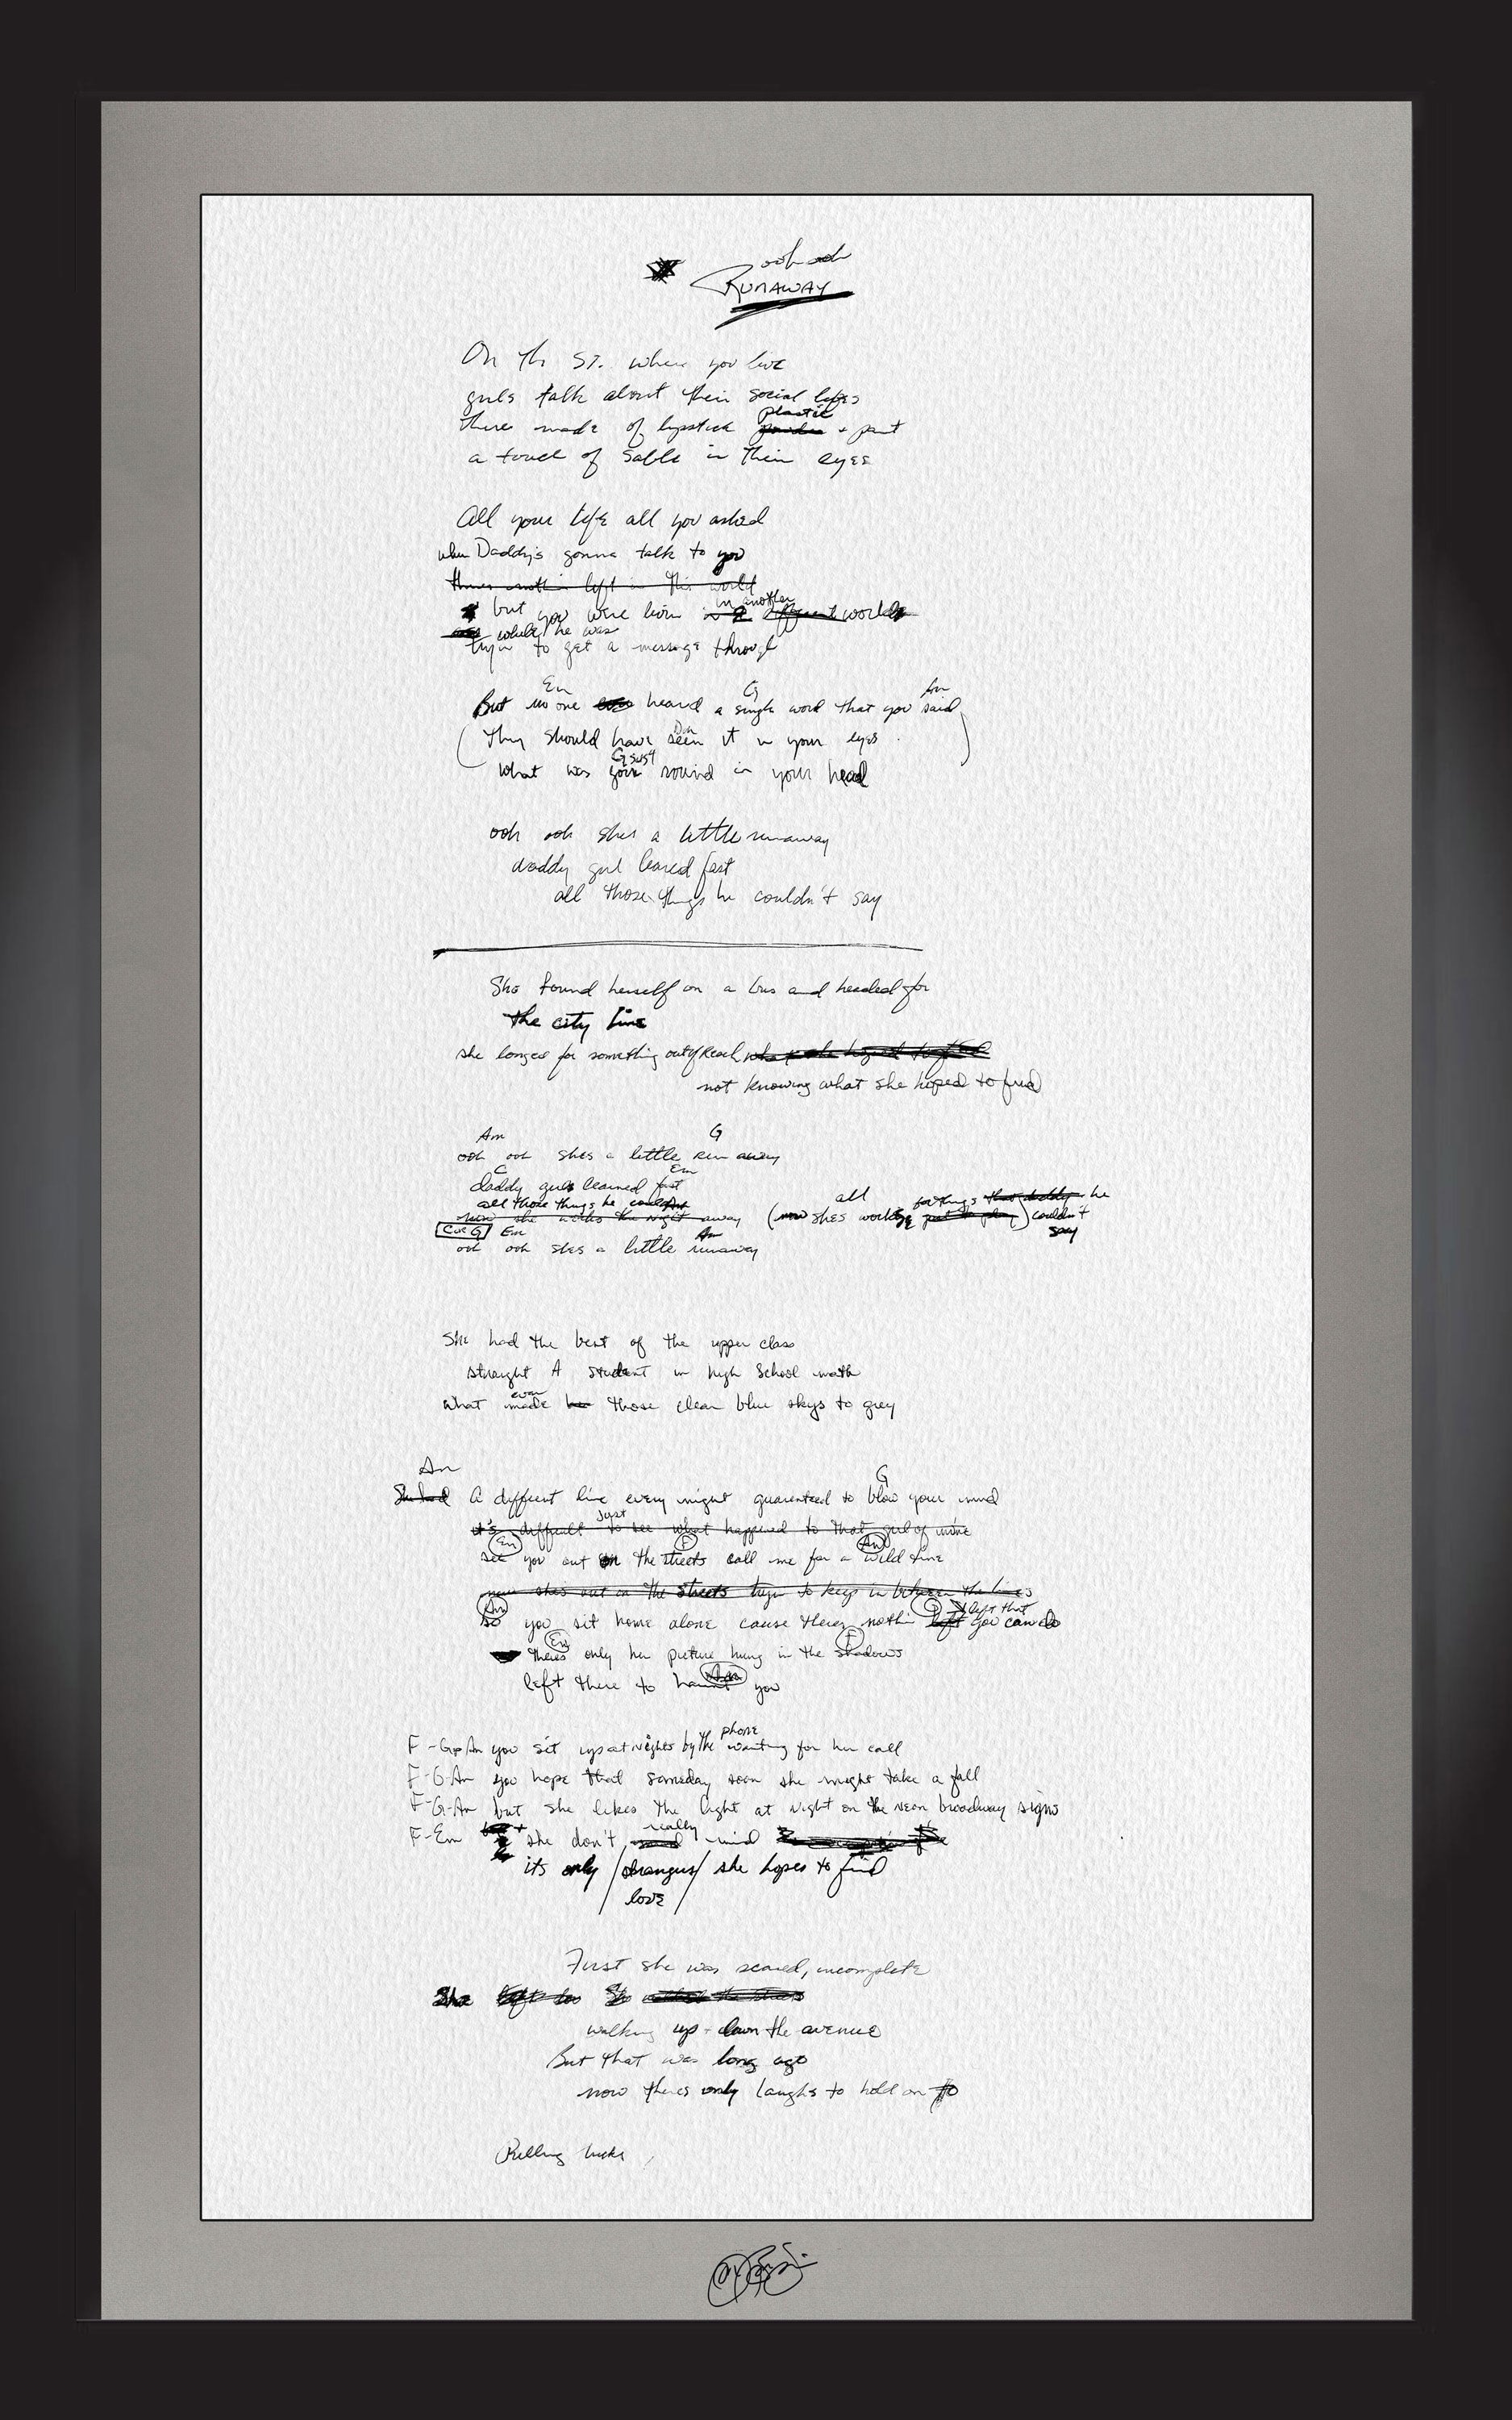 ooh ooh
RUNAWAY
On th ST. where you live
girls talk about their social lifes
there made of lipstick plastic + paint
a touch of Sable in their eyes
All your life all you asked
when Daddy's gonna talk to you
theres nothin left in this world
but you were livin in another world
while he was
tryin to get a message through
Em G Am
But no one heard a single word that you said
Dm
(They should have seen it in your eyes)
Gsus4
What was goin round in your head
ooh ooh shes a little runaway
daddy girl leared fast
all those things he couldn't say
She found herself on a bus and headed for
the city line
she longed for something out of Reach
not knowing what she hoped to find
Am G
ooh ooh shes a little run away
C Em
daddy girls learned fast
all those things he couldnt all for things that daddy he
now she walks the night away (now shes working) couldn't
say
Em Am
ooh ooh shes a little runaway
She had the best of the upper class
straight A student in high school math
even
what made those clear blue skys to grey
Am G
She had A different line every night guaranteed to blow your mind
just
it's difficult to see what happened to that girl of mine
Em F Am
see you out on the streets call me for a wild time
now she's out on the streets tryin to keep in between the lines
Am left that
so you sit home alone cause theres nothin left you can do
Em F
theres only her picture hung in the shadows
Am
left there to haunt you
phone
F-G-Am you sit up at nights by the waiting for her call
F-G-Am you hope that someday soon she might take a fall
F-G-Am but she likes the light at night on the neon broadway signs
really
F-Em she don't mind
its only /strangers/ she hopes to find
/love/
First she was scared, incomplete
She
walking up + down the avenue
But that was long ago
now theres only laughs to hold on to